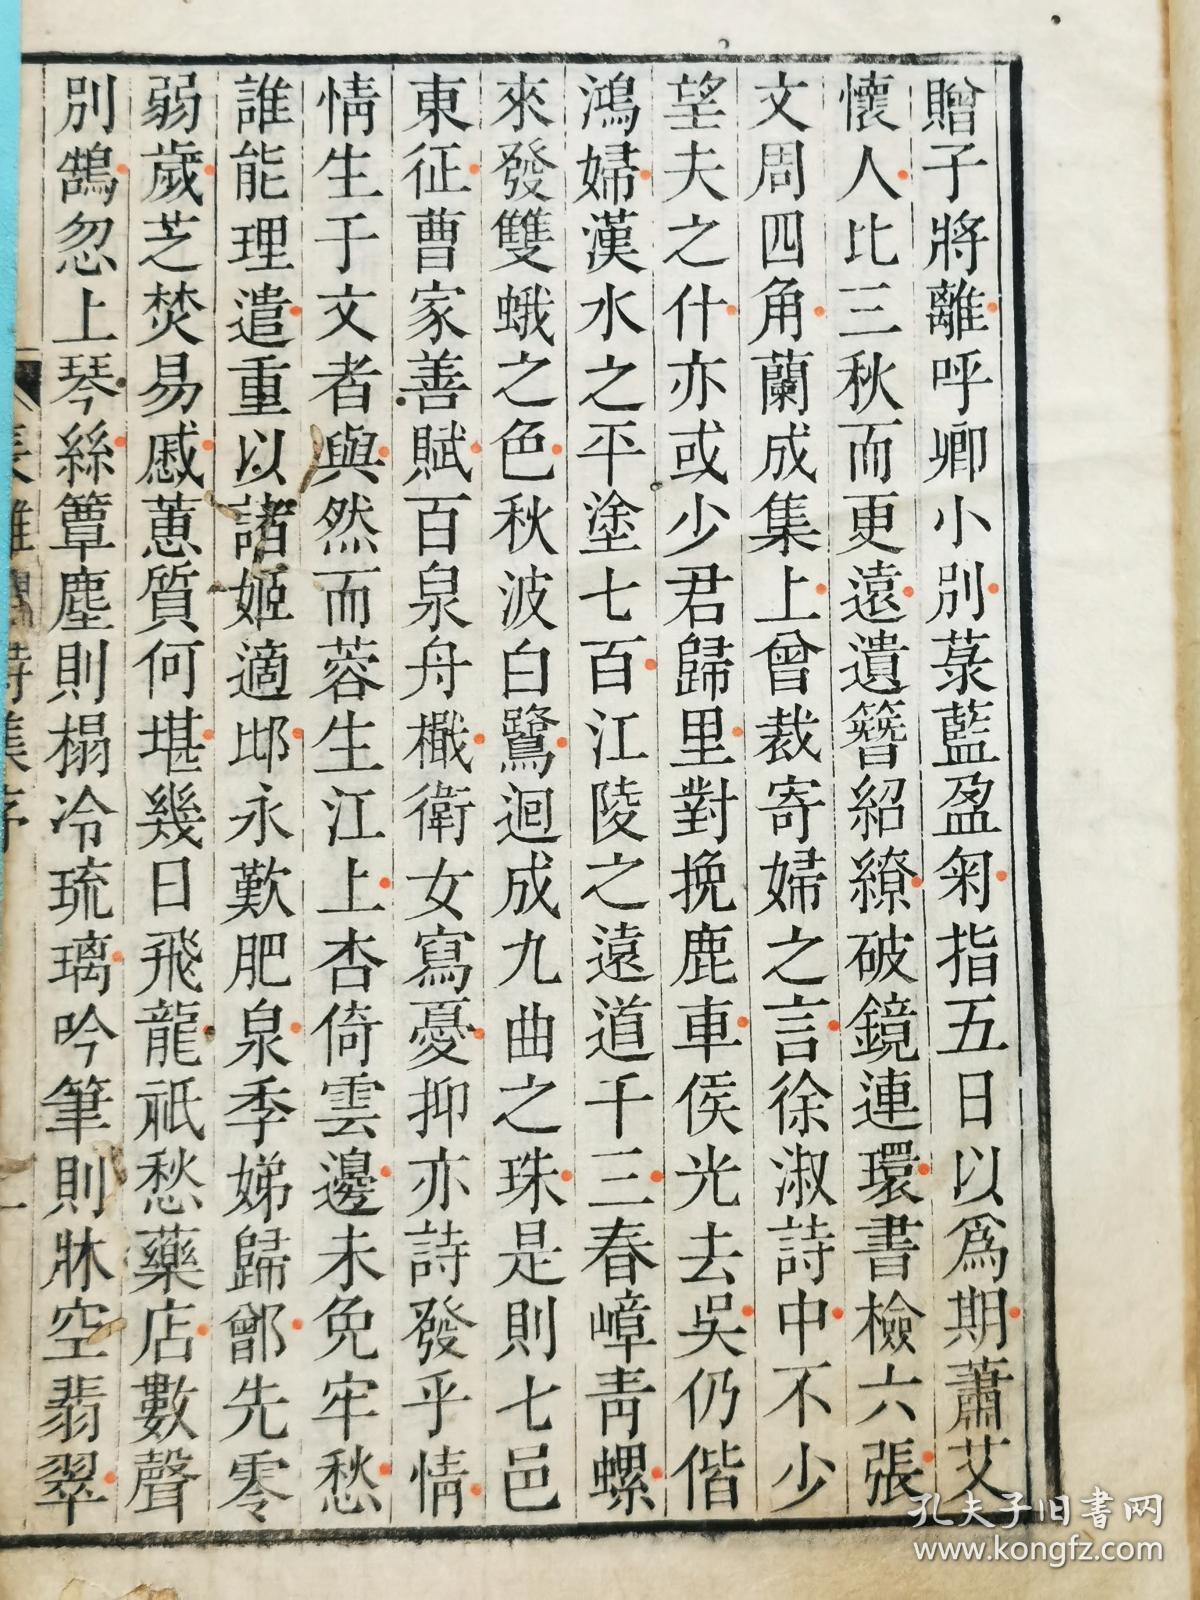 贈子將離呼卿小別菉藍盈匊指五日以爲期蕭艾
懷人比三秋而更遠遺簪紹繚破鏡連環書檢六張
文周四角蘭成集上曾裁寄婦之言徐淑詩中不少
望夫之什亦或少君歸里對挽鹿車侯光去吳仍偕
鴻婦漢水之平塗七百江陵之遠道千三春嶂靑螺
來發雙蛾之色秋波白鷺迴成九曲之珠是則七邑
東征曹家善賦百泉舟檝衛女寫憂抑亦詩發乎情
情生于文者與然而蓉生江上杏倚雲邊未免牢愁
誰能理遣重以諸姬適邶永歎肥泉季娣歸鄫先零
弱歲芝焚易慼蕙質何堪幾日飛龍祇愁藥店數聲
別鵠忽上琴絲簟塵則榻冷琉璃吟筆則牀空翡翠
集序
孔夫子旧书网
www.kongfz.com